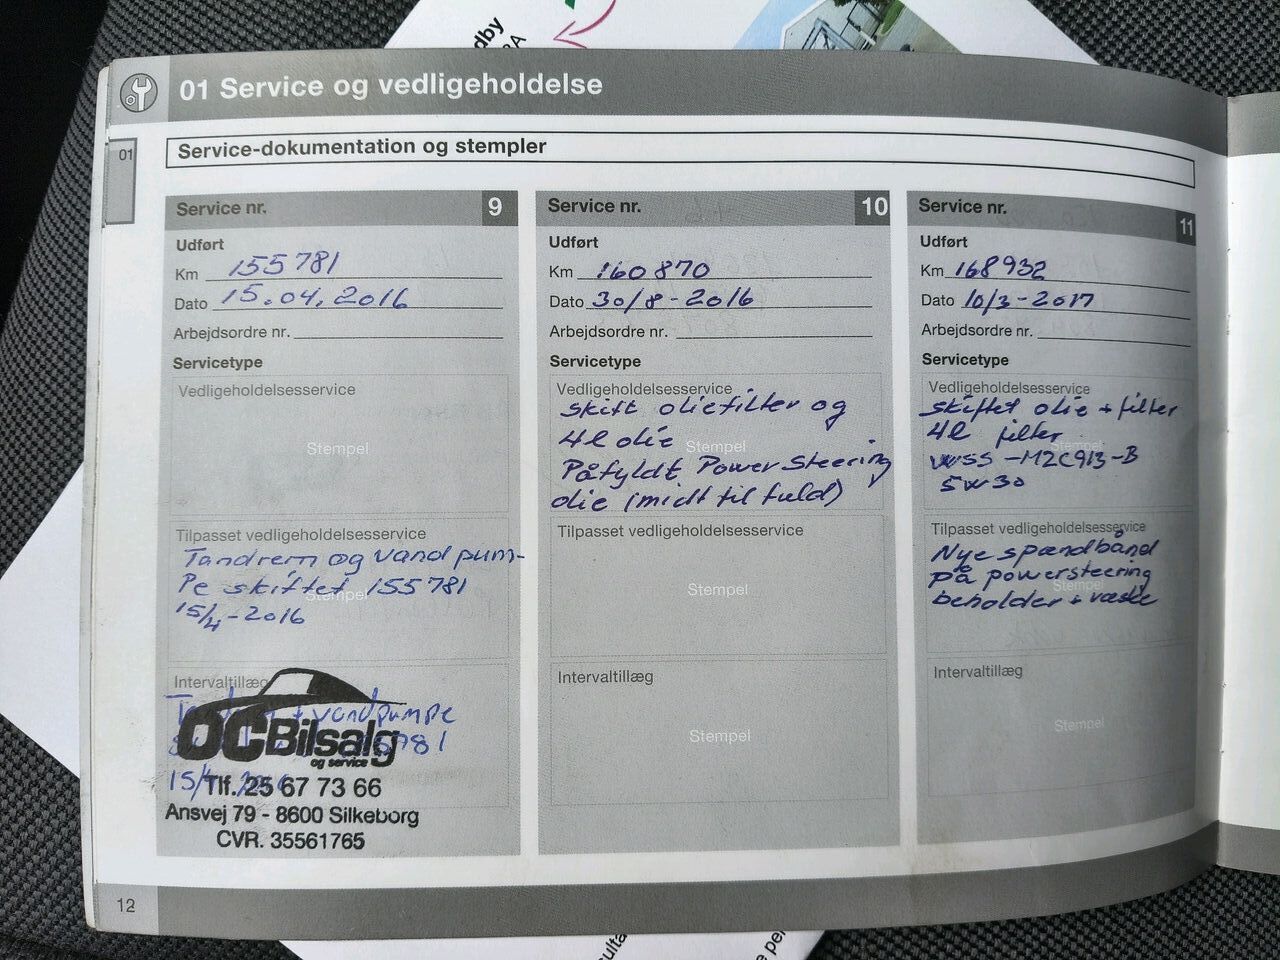 dby
01 Service og vedligeholdelse
01
Service-dokumentation og stempler
Service nr. 9
Udført
Km 155781
Dato 15.04.2016
Arbejdsordre nr.
Servicetype
Vedligeholdelsesservice
Stempel
Tilpasset vedligeholdelsesservice
Tandrem og vandpum-
pe skiftet 155781
Stempel
15/4-2016
Intervaltillæg
+ vandpumpe
OC Bilsalg
og service
15/4
Tlf. 25 67 73 66
Ansvej 79 - 8600 Silkeborg
CVR. 35561765
Service nr. 10
Udført
Km 160870
Dato 30/8-2016
Arbejdsordre nr.
Servicetype
Vedligeholdelsesservice
skift oliefilter og
4l olie
Stempel
Påfyldt Power Steering
olie (midt til fuld)
Tilpasset vedligeholdelsesservice
Stempel
Intervaltillæg
Stempel
Service nr. 11
Udført
Km 168932
Dato 10/3-2017
Arbejdsordre nr.
Servicetype
Vedligeholdelsesservice
skiftet olie + filter
4l filter
Stempel
WSS-M2C913-B
5W30
Tilpasset vedligeholdelsesservice
Nye spændbånd
på powersteering
Stempel
beholder + væske
Intervaltillæg
Stempel
12